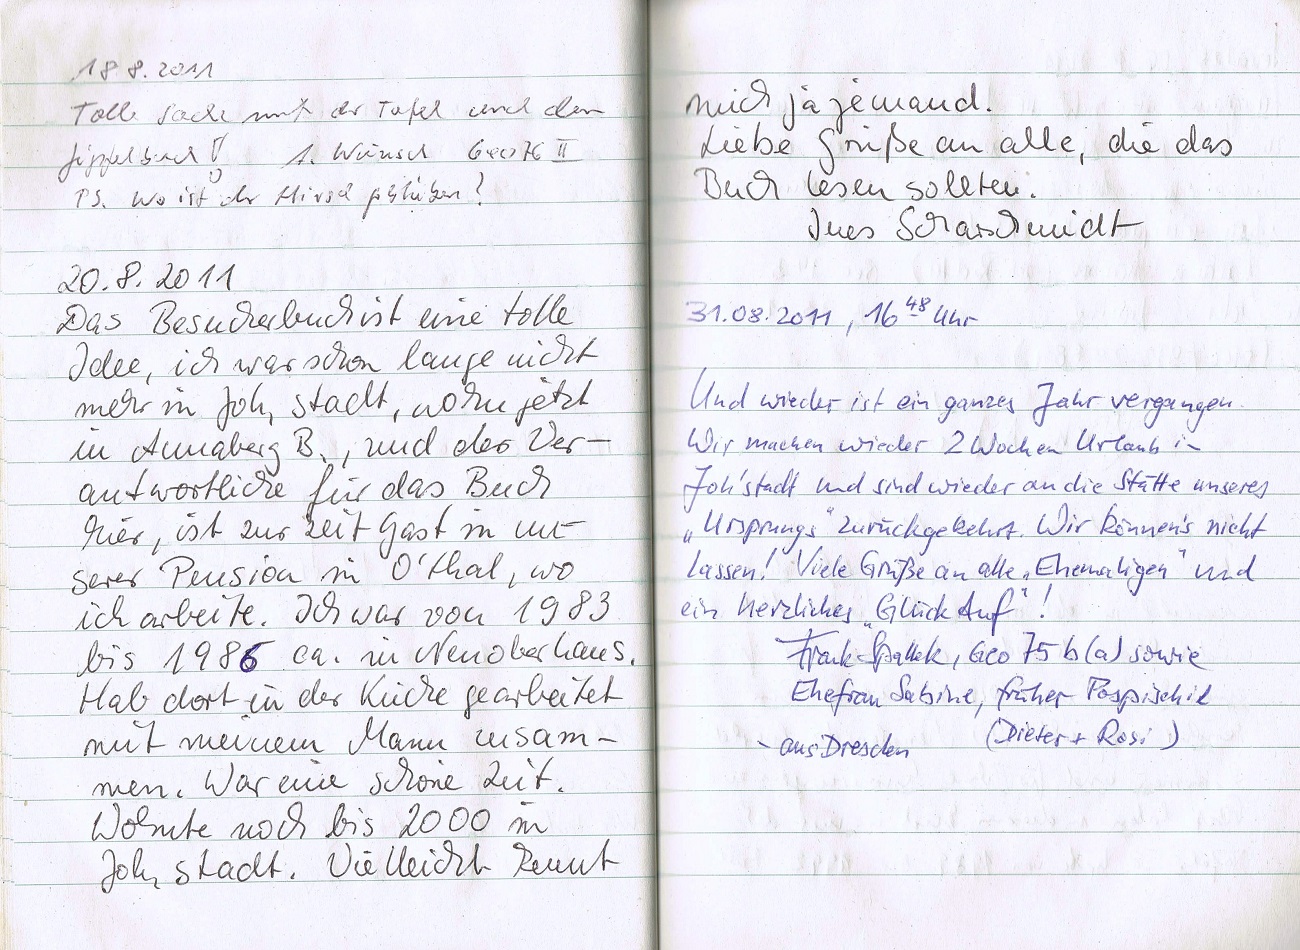 18.8.2011
Tolle Sache mit der Tafel und dem
Gipfelbuch! 1. Wunsch Geo76 II
PS. Wo ist der Hirsch geblieben?
20.8.2011
Das Besucherbuch ist eine tolle
Idee, ich war schon lange nicht
mehr in Joh, stadt, wohne jetzt
in Annaberg B., und der Ver-
antwortliche für das Buch
hier, ist zur Zeit Gast in un-
serer Pension in O'thal, wo
ich arbeite. Ich war von 1983
bis 1986 ca. in Neuoberhaus.
Hab dort in der Küche gearbeitet
mit meinem Mann zusam-
men. War eine schöne Zeit.
Wohnte noch bis 2000 in
Joh, stadt. Vielleicht kennt
mich ja jemand.
Liebe Grüße an alle, die das
Buch lesen sollten.
Ines Scharschmidt
31.08.2011, 16 48 Uhr
Und wieder ist ein ganzes Jahr vergangen.
Wir machen wieder 2 Wochen Urlaub in
Joh'stadt und sind wieder an die Stätte unseres
„Ursprungs" zurückgekehrt. Wir können's nicht
lassen! Viele Grüße an alle „Ehemaligen" und
ein herzliches „Glück Auf"!
Frank Spallek, Geo 75 b (a) sowie
Ehefrau Sabine, früher Pospischil
- aus Dresden (Dieter + Rosi)